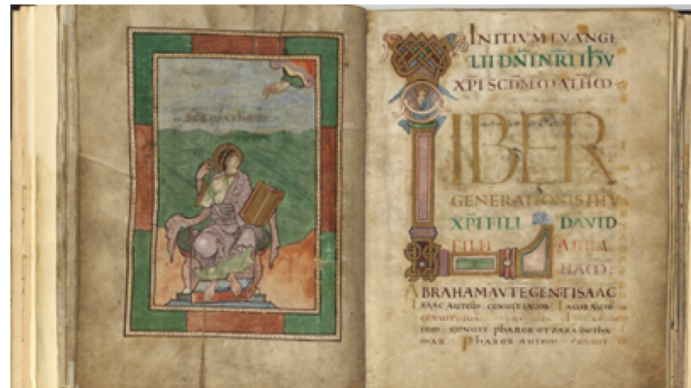 INITIVM EVANGE
LII DN̅I N̅R̅I IHV
XP̅I SCDM MATHM
LIBER
GENERATIONIS IHV
XP̅I FILI DAVID
FILII ABRA
HAM
ABRAHAM AVTE GENT ISAAC
ISAAC AUTEM GENUIT IACOB IACOB AUTE
GENUIT
TEM GENUIT PHARES ET ZARA DETHA
MAR PHARES AUTEM GENUIT